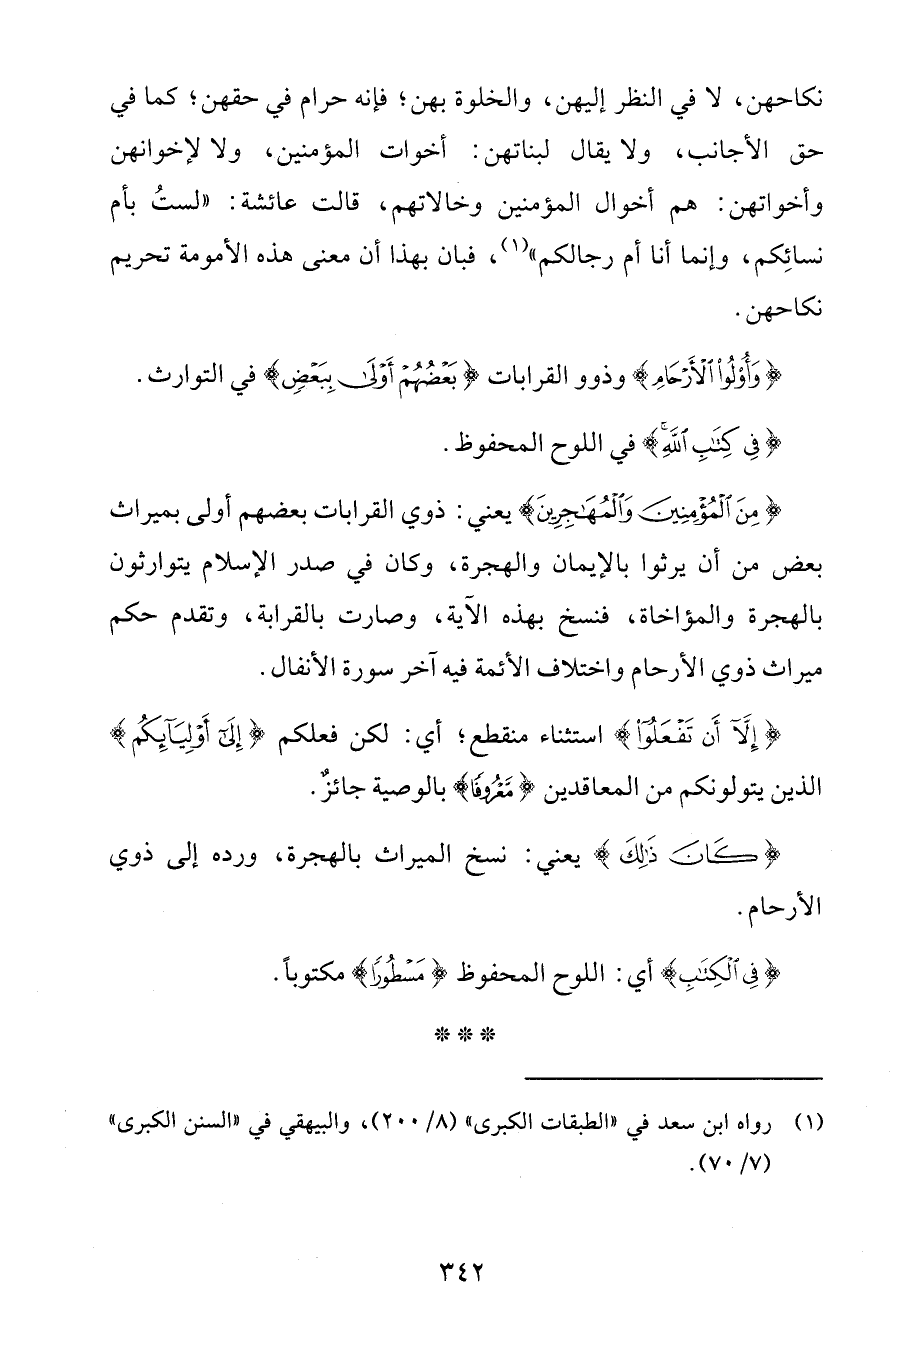 نكاحهن، لا في النظر إليهن، والخلوة بهن؛ فإنه حرام في حقهن؛ كما في
حق الأجانب، ولا يقال لبناتهن: أخوات المؤمنين، ولا لإخوانهن
وأخواتهن: هم أخوال المؤمنين وخالاتهم، قالت عائشة: «لستُ بأم
نسائِكم، وإنما أنا أم رجالكم»(١)، فبان بهذا أن معنى هذه الأمومة تحريم
نكاحهن.
﴿وَأُوْلُواْ ٱلْأَرْحَامِ﴾ وذوو القرابات ﴿بَعْضُهُمْ أَوْلَىٰ بِبَعْضٍ﴾ في التوارث.
﴿فِي كِتَٰبِ ٱللَّهِۚ﴾ في اللوح المحفوظ.
﴿مِنَ ٱلْمُؤْمِنِينَ وَٱلْمُهَٰجِرِينَ﴾ يعني: ذوي القرابات بعضهم أولى بميراث
بعض من أن يرثوا بالإيمان والهجرة، وكان في صدر الإسلام يتوارثون
بالهجرة والمؤاخاة، فنسخ بهذه الآية، وصارت بالقرابة، وتقدم حكم
ميراث ذوي الأرحام واختلاف الأئمة فيه آخر سورة الأنفال.
﴿إِلَّآ أَن تَفْعَلُوٓاْ﴾ استثناء منقطع؛ أي: لكن فعلكم ﴿إِلَىٰٓ أَوْلِيَآئِكُم﴾
الذين يتولونكم من المعاقدين ﴿مَّعْرُوفًا﴾ بالوصية جائزٌ.
﴿كَانَ ذَٰلِكَ﴾ يعني: نسخ الميراث بالهجرة، ورده إلى ذوي
الأرحام.
﴿فِي ٱلْكِتَٰبِ﴾ أي: اللوح المحفوظ ﴿مَسْطُورًا﴾ مكتوباً.
* * *
(١) رواه ابن سعد في «الطبقات الكبرى» (٨/ ٢٠٠)، والبيهقي في «السنن الكبرى»
(٧/ ٧٠).
٣٤٢